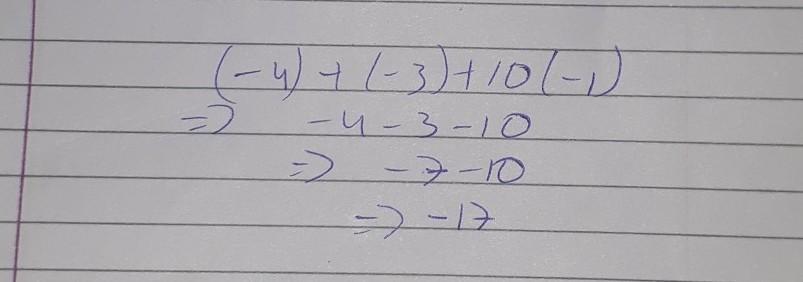 (-4) + (-3) + 10(-1)
=> -4 - 3 - 10
=> -7 - 10
=> -17